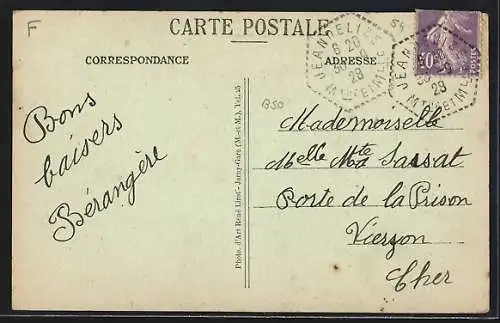 F
CARTE POSTALE
CORRESPONDANCE
ADRESSE
JEANDELIZE
6 20
28
Mthe ET Mlle
POSTES
B50
Bons
baisers
Bérangère
Photo. d'Art René Lhuil - Jarny-Gare (M.-et-M.), Tel. 55
Mademoiselle
Melle Mte Sassat
Porte de la Prison
Vierzon
Cher